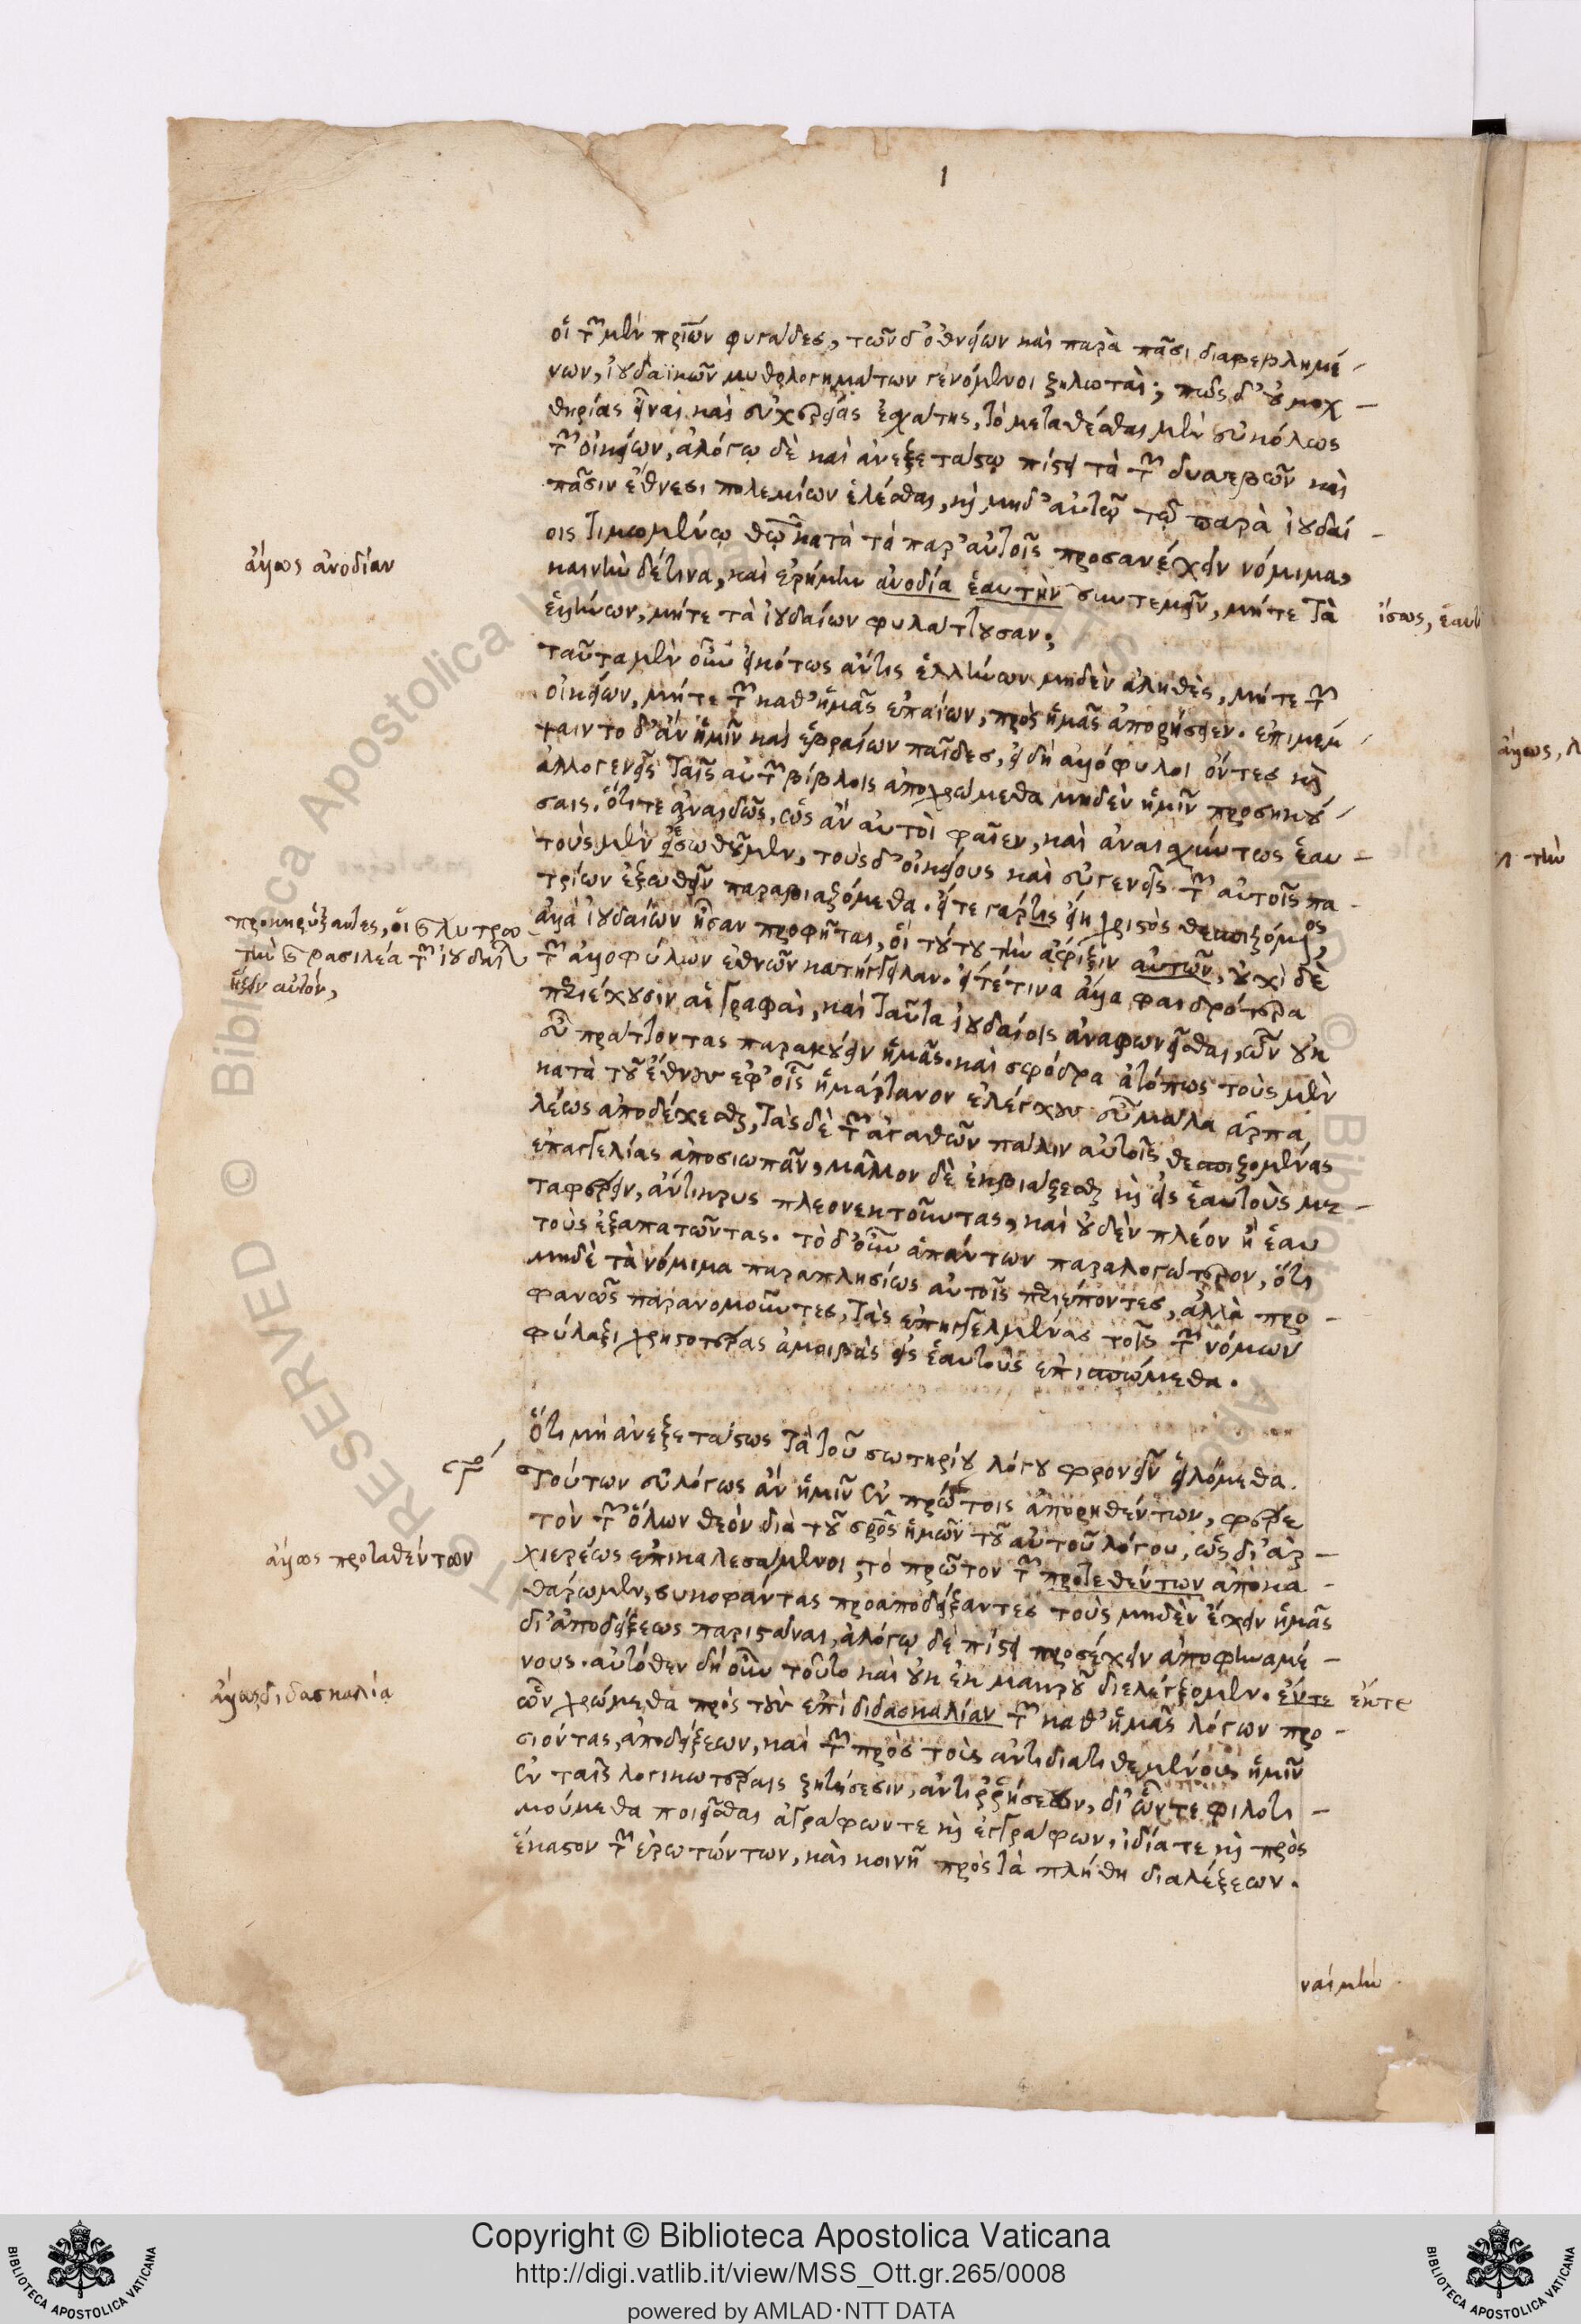 1
οἱ τῶν μὲν πατρίων φυγάδες, τῶν δ' ὀθνείων καὶ παρὰ πᾶσι διαβεβλημέ-
νων, ἰουδαϊκῶν μυθολογημάτων γενόμενοι ζηλωταί; πῶς δ' οὐ μοχ-
θηρίας εἶναι καὶ εὐχερείας ἐσχάτης, τὸ μεταθέσθαι μὲν εὐκόλως
τῶν οἰκείων, ἀλόγῳ δὲ καὶ ἀνεξετάστῳ πίστει τὰ τῶν δυσσεβῶν καὶ
πᾶσιν ἔθνεσι πολεμίων ἑλέσθαι, καὶ μηδ' αὐτῷ τῷ παρὰ ἰουδαί-
οις τιμωμένῳ θεῷ κατὰ τὰ παρ' αὐτοῖς προσανέχειν νόμιμα,
καινὴν δέ τινα, καὶ ἐρήμην ἀνοδία ἑαυτὴν συντεμεῖν, μήτε τὰ
ἑλλήνων, μήτε τὰ ἰουδαίων φυλάττουσαν;
ταῦτα μὲν οὖν εἰκότως ἄν τις ἑλλήνων μηδὲν ἀληθὲς, μήτε τῶν
οἰκείων, μήτε τῶν καθ' ἡμᾶς ἐπαΐων, πρὸς ἡμᾶς ἀπορήσειεν. ἐπιμέμ-
ψαιντο δ' ἂν ἡμῖν καὶ ἑβραίων παῖδες, εἰ δὴ ἀλλόφυλοι ὄντες καὶ
ἀλλογενεῖς ταῖς αὐτῶν βίβλοις ἀποχρώμεθα μηδὲν ἡμῖν προσηκού-
σαις. ὅτι τε ἀναιδῶς, ὡς ἂν αὐτοὶ φαῖεν, καὶ ἀναισχύντως ἑαυ-
τοὺς μὲν εἰσωθοῦμεν, τοὺς δ' οἰκείους καὶ συγγενεῖς τῶν αὐτοῖς πα-
τρίων ἐξωθεῖν παραβιαζόμεθα. εἴτε γάρ τις εἴη χριστὸς θεσπιζόμενος,
ἀλλὰ ἰουδαίων ἦσαν προφῆται, οἱ τούτου τὴν ἄφιξιν αὐτῶν, οὐχὶ δὲ
τῶν ἀλλοφύλων ἐθνῶν κατήγγειλαν. εἴτέ τινα ἄλλα φαιδρότερα
περιέχουσιν αἱ γραφαὶ, καὶ ταῦτα ἰουδαίοις ἀναφωνεῖσθαι, ὧν οὐκ
εὖ πράττοντας παρακούειν ἡμᾶς. καὶ σφόδρα ἀτόπως τοὺς μὲν
κατὰ τοῦ ἔθνους ἐφ' οἷς ἡμάρτανον ἐλέγχους εὖ μάλα ἁρπα
λέως ἀποδέχεσθαι, τὰς δὲ τῶν ἀγαθῶν πάλιν αὐτοῖς θεσπιζομένας
ἐπαγγελίας ἀποσιωπᾶν, μᾶλλον δὲ ἐκβιάζεσθαι καὶ εἰς ἑαυτοὺς με-
ταφέρειν, ἄντικρυς πλεονεκτοῦντας, καὶ οὐδὲν πλέον ἢ ἑαυ
τοὺς ἐξαπατῶντας. τὸ δ' οὖν ἁπάντων παραλογώτερον, ὅτι
μηδὲ τὰ νόμιμα παραπλησίως αὐτοῖς περιέποντες, ἀλλὰ προ-
φανῶς παρανομοῦντες, τὰς ἐπηγγελμένας τοῖς τῶν νόμων
φύλαξι χρηστοτέρας ἀμοιβὰς εἰς ἑαυτοὺς ἐπισπώμεθα.
ὅτι μὴ ἀνεξετάστως τὰ τοῦ σωτηρίου λόγου φρονεῖν εἱλόμεθα.
τούτων εὐλόγως ἂν ἡμῖν ἐν πρώτοις ἀπορηθέντων, φέρε
τὸν τῶν ὅλων θεὸν διὰ τοῦ σρος ἡμῶν τοῦ αὐτοῦ λόγου, ὡς δι' ἀρ-
χιερέως ἐπικαλεσάμενοι, τὸ πρῶτον τῶν προτεθέντων ἀποκα-
θάρωμεν, συκοφάντας προαποδείξαντες τοὺς μηδὲν ἔχειν ἡμᾶς
δι' ἀποδείξεως παριστάναι, ἀλόγῳ δὲ πίστει προσέχειν ἀποφηναμέ-
νους. αὐτόθεν δὴ οὖν τοῦτο καὶ οὐκ ἐκ μακροῦ διελέγξομεν. ἔντε
ὧν χρώμεθα πρὸς τοὺς ἐπὶ διδασκαλίαν τῶν καθ' ἡμᾶς λόγων προ-
σιόντας, ἀποδείξεων, καὶ τῶν πρὸς τοὺς ἀντιδιατιθεμένους ἡμῖν
ἐν ταῖς λογικωτέραις ζητήσεσιν, ἀντιρρήσεων, δι' ὧν τε φιλοτι-
μούμεθα ποιεῖσθαι ἀγράφων τε καὶ ἐγγράφων, ἰδίᾳ τε καὶ πρὸς
ἕκαστον τῶν ἐρωτώντων, καὶ κοινῇ πρὸς τὰ πλήθη διαλέξεων.
ναὶ μὴν
ἄλλως ἀνοδίαν
ἴσως, ἑαυτ
προκηρύξαντες, οἱ λυτρω
τὴν βασιλέα τῶν ἰουδαί
ἥξειν αὐτόν,
ἄλλως προταθέντων
ἄλλως διδασκαλίᾳ
ἔκτε
ἄλλως, λ
Copyright © Biblioteca Apostolica Vaticana
http://digi.vatlib.it/view/MSS_Ott.gr.265/0008
powered by AMLAD·NTT DATA
BIBLIOTECA APOSTOLICA VATICANA
BIBLIOTECA APOSTOLICA VATICANA